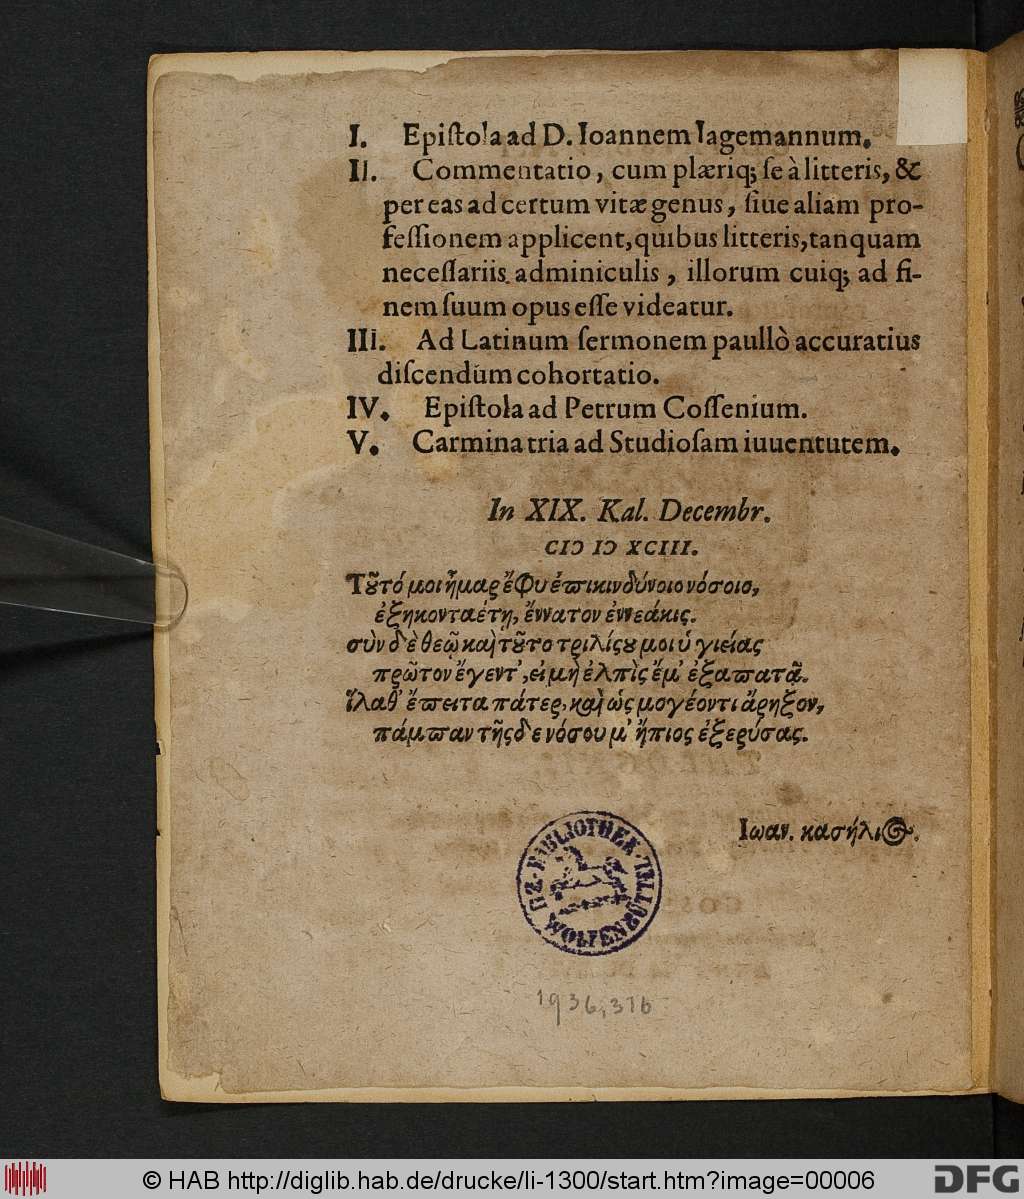 I. Epiſtola ad D. Ioannem Iagemannum.
II. Commentatio, cum plæriq; ſe à litteris, &
per eas ad certum vitæ genus, ſiue aliam pro-
feſſionem applicent, quibus litteris, tanquam
neceſſariis adminiculis, illorum cuiq; ad fi-
nem ſuum opus eſſe videatur.
III. Ad Latinum ſermonem paullò accuratius
diſcendum cohortatio.
IV. Epiſtola ad Petrum Coſſenium.
V. Carmina tria ad Studioſam iuuentutem.
In XIX. Kal. Decembr.
CIↃ IↃ XCIII.
Τȣ͂τό μοι ἦμαρ ἔφυ ἐπικινδύνοιο νόσοιο,
ἐξηκονταέτῃ, ἔννατον ἐννεάκις.
σὺν δὲ θεῷ καὶ τȣ͂το τριλίςȣ μοι ὑγιείας
πρῶτον ἔγεντ', εἰ μὴ ἐλπὶς ἔμ' ἐξαπατᾷ.
ἵλαθ' ἔπειτα πάτερ, καὶ ὡς μογέοντι ἄρηξον,
πάμπαν τῆςδε νόσου μ' ἤπιος ἐξερύσας.
Ιωαν. κασήλιος.
BIBLIOTHEK
1936,316
© HAB http://diglib.hab.de/drucke/li-1300/start.htm?image=00006
DFG